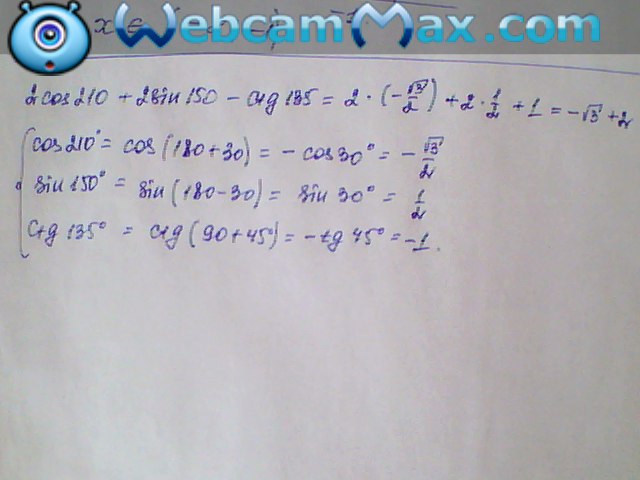 WebcamMax.com
x ∈
2cos210 + 2sin150 - ctg135 = 2 · (-√3/2) + 2 · 1/2 + 1 = -√3 + 2
cos210° = cos(180+30) = - cos30° = - √3/2
sin150° = sin(180-30) = sin30° = 1/2
ctg135° = ctg(90+45°) = -tg45° = -1.